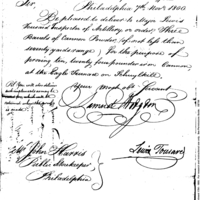 Sir,
Philadelphia 7th Novr 1800
Be pleased to deliver to Major Lewis
Tousard Inspector of Artillery or order, Three
Barrels of Cannon Powder, of not less than
seventy yards range. For the purpose of
proving ten, twenty four pounders on Cannon
at the Eagle Furnace on Schuylkill
Your most obt Servant
Samuel Hodgdon
Mr John Harris
Public Storekeeper
Philadelphia
Lewis Tousard